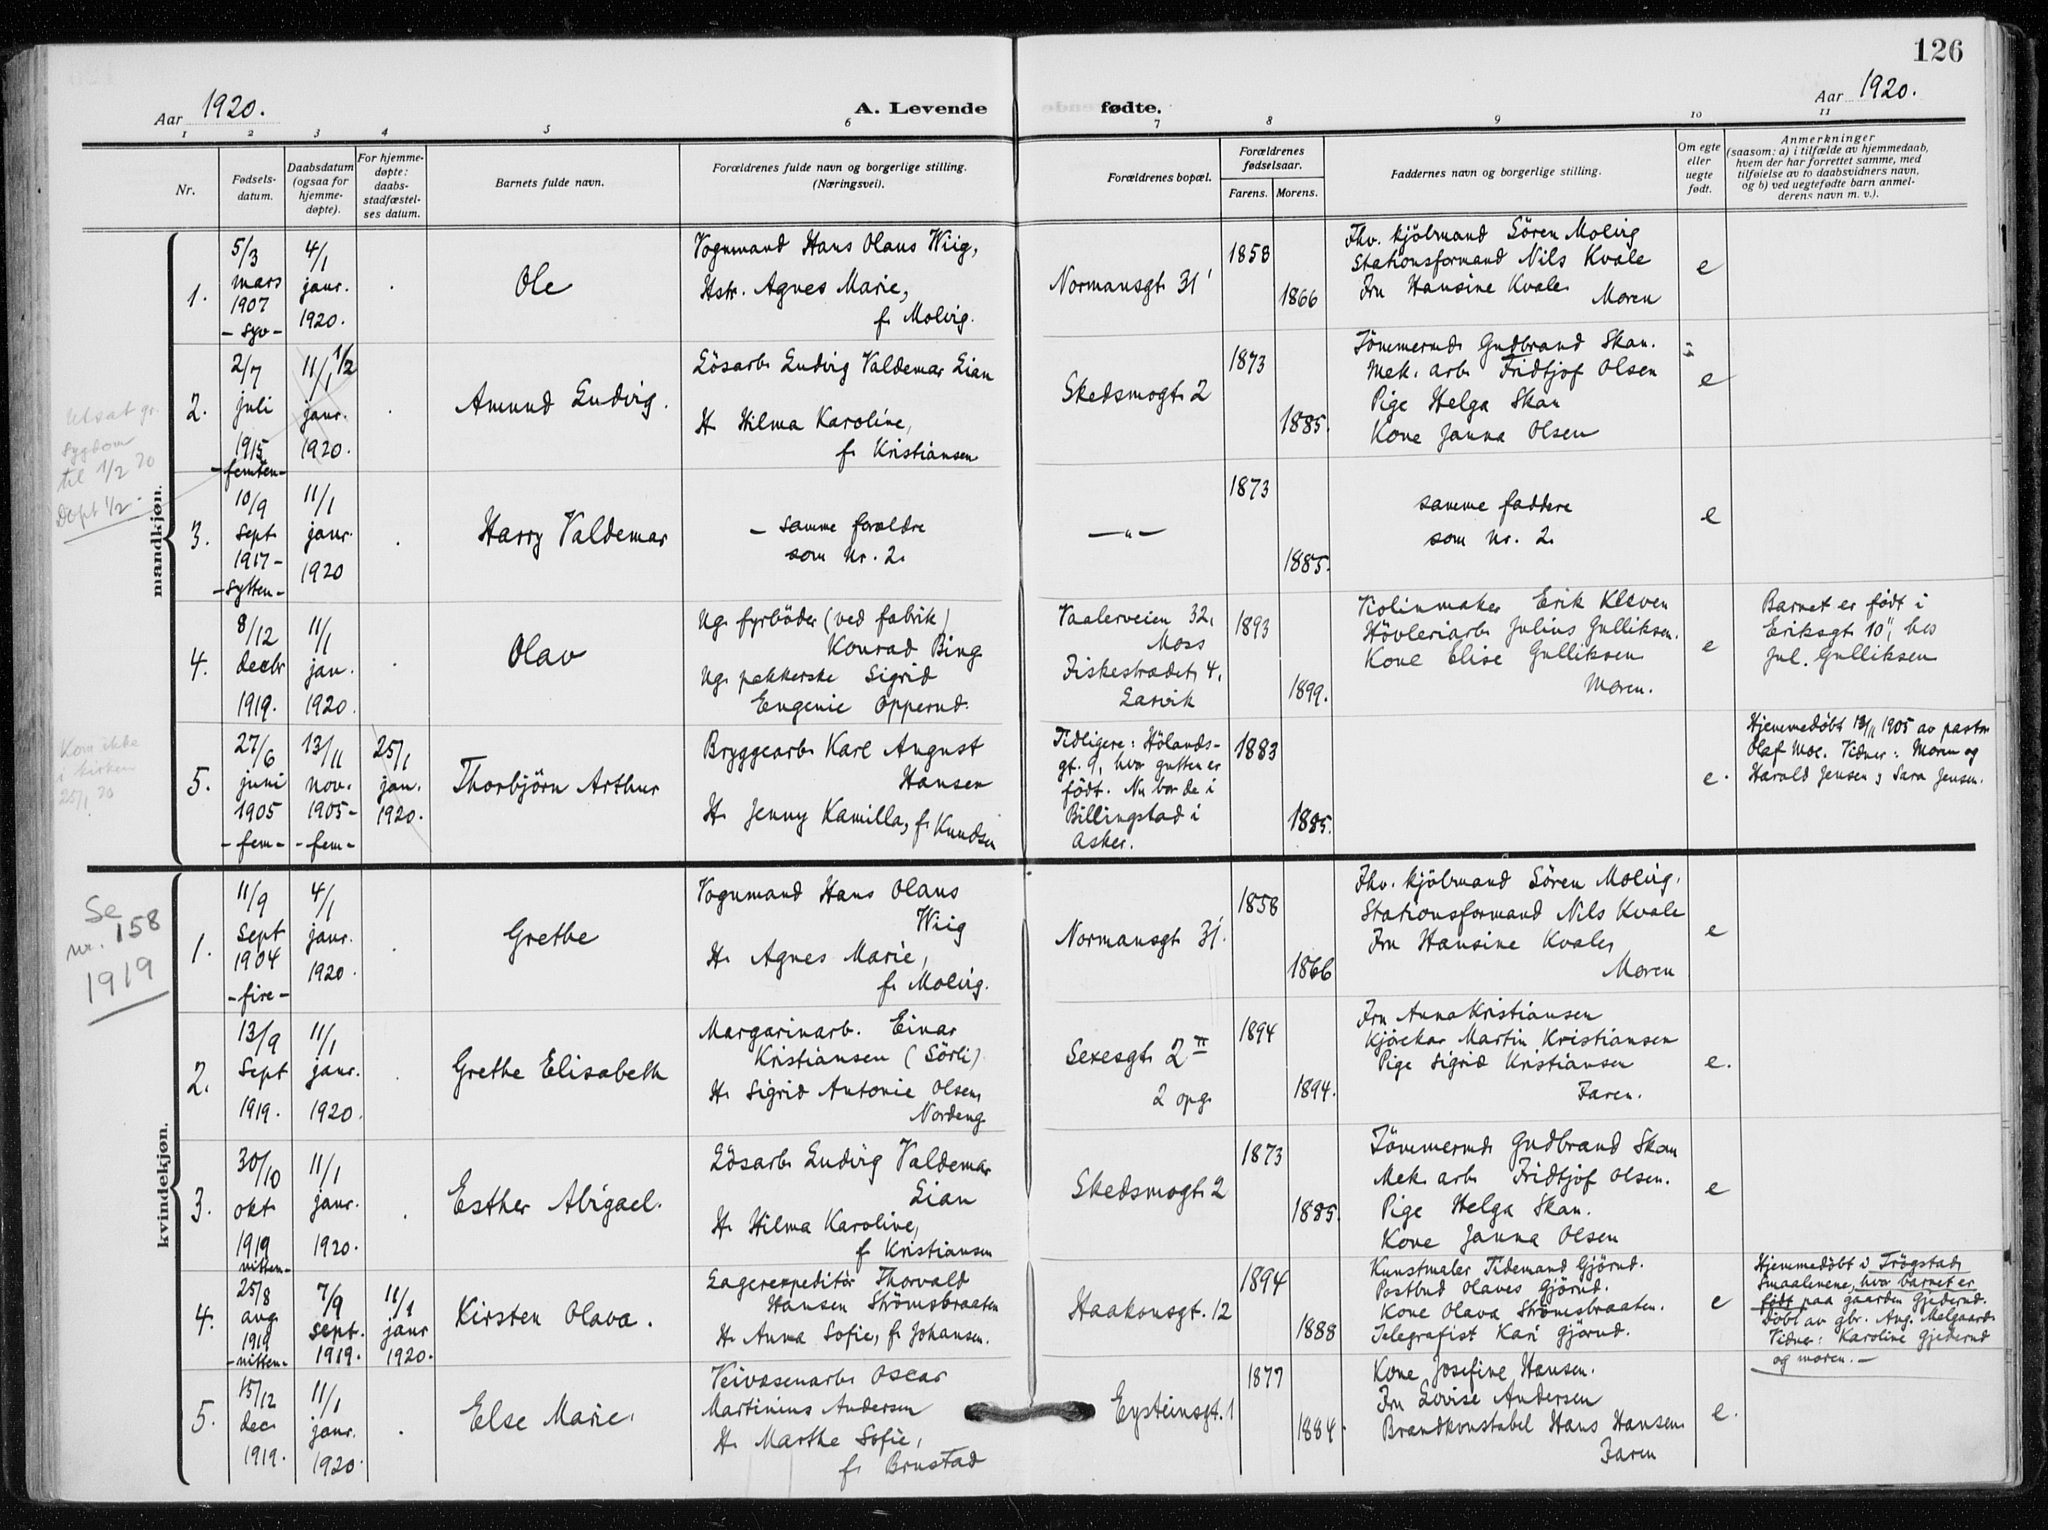 126
Aar 1920.
A. Levende fødte.
Aar 1920.
1 2 3 4 5 6 7 8 9 10 11
Nr.
Fødsels-
datum.
Daabsdatum
(ogsaa for
hjemme-
døpte).
For hjemme-
døpte:
daabs-
stadfæstel-
ses datum.
Barnets fulde navn.
Forældrenes fulde navn og borgerlige stilling.
(Næringsvei).
Forældrenes bopæl.
Forældrenes
fødselsaar.
Farens. Morens.
Faddernes navn og borgerlige stilling.
Om egte
eller
uegte
født.
Anmerkninger
(saasom: a) i tilfælde av hjemmedaab,
hvem der har forrettet samme, med
tilføielse av to daabsvidners navn,
og b) ved uegtefødte barn anmel-
derens navn m. v.).
mandkjøn.
1.
5/3
mars
1907
- syv -
4/1
janr.
1920.
Ole
Vognmand Hans Olaus Wiig,
Hstr. Agnes Marie,
f. Molvig.
Normansgt. 31'
1858
1866
Fhv. kjölmand Sören Molvig
Stationsformand Nils Kvale
Fru Hansine Kvale.
Moren
e
Utsat gr.
sygdom
til 1/2 20
Døpt 1/2.
2.
2/7
juli
1915
- femten -
11/1 1/2
janr.
1920.
Amund Ludvig.
Lösarb. Ludvig Valdemar Lian
H. Hilma Karoline,
f. Kristiansen
Skedsmogt. 2
1873
1885.
Tömmermd. Gudbrand Skau.
Mek. arb. Fridtjof Olsen
Pige Helga Skau
Kone Janna Olsen
e
3.
10/9
sept.
1917 -
- sytten -
11/1
janr.
1920
Harry Valdemar
- samme forældre
som nr. 2.
— " —
1873
1885.
samme faddere
som nr. 2.
e
4.
8/12
decbr
1919.
11/1
jan.
1920.
Olav
Ug. fyrböder (ved fabrik)
Konrad Bing
Ug. pakkerske Sigrid
Eugenie Opperud.
Vaalerveien 32,
Moss
Fiskestrædet 4,
Larvik
1893
1899.
Violinmaker Erik Kleven
Hövleriarb. Julius Gulliksen.
Kone Elise Gulliksen
Moren.
e
Barnet er født i
Eriksgt 10", hos
Jul. Gulliksen
Kom ikke
i kirken
25/1 20
5.
27/6
juni
1905
- fem -
13/11
nov.
1905 -
- fem -
25/1
jan.
1920.
Thorbjörn Arthur
Bryggearb. Karl August
Hansen
H. Jenny Kamilla, f. Knudsen
Tidligere: Hölands-
gt. 9, hvor gutten er
født. Nu bor de i
Billingstad i
Asker.
1883
1885.
e.
Hjemmedøbt 13/11 1905 av pastor
Olaf Moe. Vidner: Moren og
Harald Jensen og Sara Jensen.
kvindekjøn.
Se
nr. 158
1919
1.
11/9
Sept
1904
- fire -
4/1
janr.
1920.
Grethe
Vognmand Hans Olaus
Wiig
H. Agnes Marie,
f. Molvig.
Normansgt. 31'.
1858
1866
Fhv. kjölmand Sören Molvig.
Stationsformand Nils Kvale
Fru Hansine Kvale,
Moren
e
2.
13/9
Sept
1919.
11/1
janr.
1920.
Grethe Elisabeth
Margarinarb. Einar
Kristiansen (Sörli)
H. Sigrid Antonie Olsen
Nordeng
Sexesgt. 2 II
2 opg.
1894
1894.
Fru Anna Kristiansen
Martin Kristiansen
Pige Sigrid Kristiansen
Faren.
e.
3.
30/10
okt.
1919
nitten -
11/1
janr.
1920.
Esther Abigael.
Lösarb. Ludvig Valdemar
Lian
H. Hilma Karoline,
f. Kristiansen
Skedsmogt. 2
1873
1885.
Tömmermd. Gudbrand Skau
Mek. arb. Fridtjof Olsen.
Pige Helga Skau.
Kone Janna Olsen
e
4.
25/8
aug.
1919
- nitten -
7/9
sept.
1919.
11/1
janr
1920.
Kirsten Olava.
Lagerexpeditör Thorvald
Hansen Strömsbraaten
H. Anna Sofie, f. Johansen.
Haakonsgt. 12
1894
1888
Kunstmaler Tidemand Gjörud.
Postbud Olaves Gjörud.
Kone Olava Strömsbraaten.
Telegrafist Kari Gjörud.
e
Hjemmedøbt i Trögstad,
Smaalenene, hvor barnet er
født paa gaarden Gjederud.
Döbt av gbr. Aug. Melgaard.
Vidner: Karoline Gjederud
og moren. —
5.
15/12
dec.
1919.
11/1
janr.
1920.
Else Marie.
Veivæsenarb. Oscar
Martinius Andersen
H. Marthe Sofie,
f. Brustad
Eysteinsgt. 1
1877
1884.
Kone Josefine Hansen.
Fru Lovise Andersen
Brandkonstabel Hans Hansen
Faren
e.